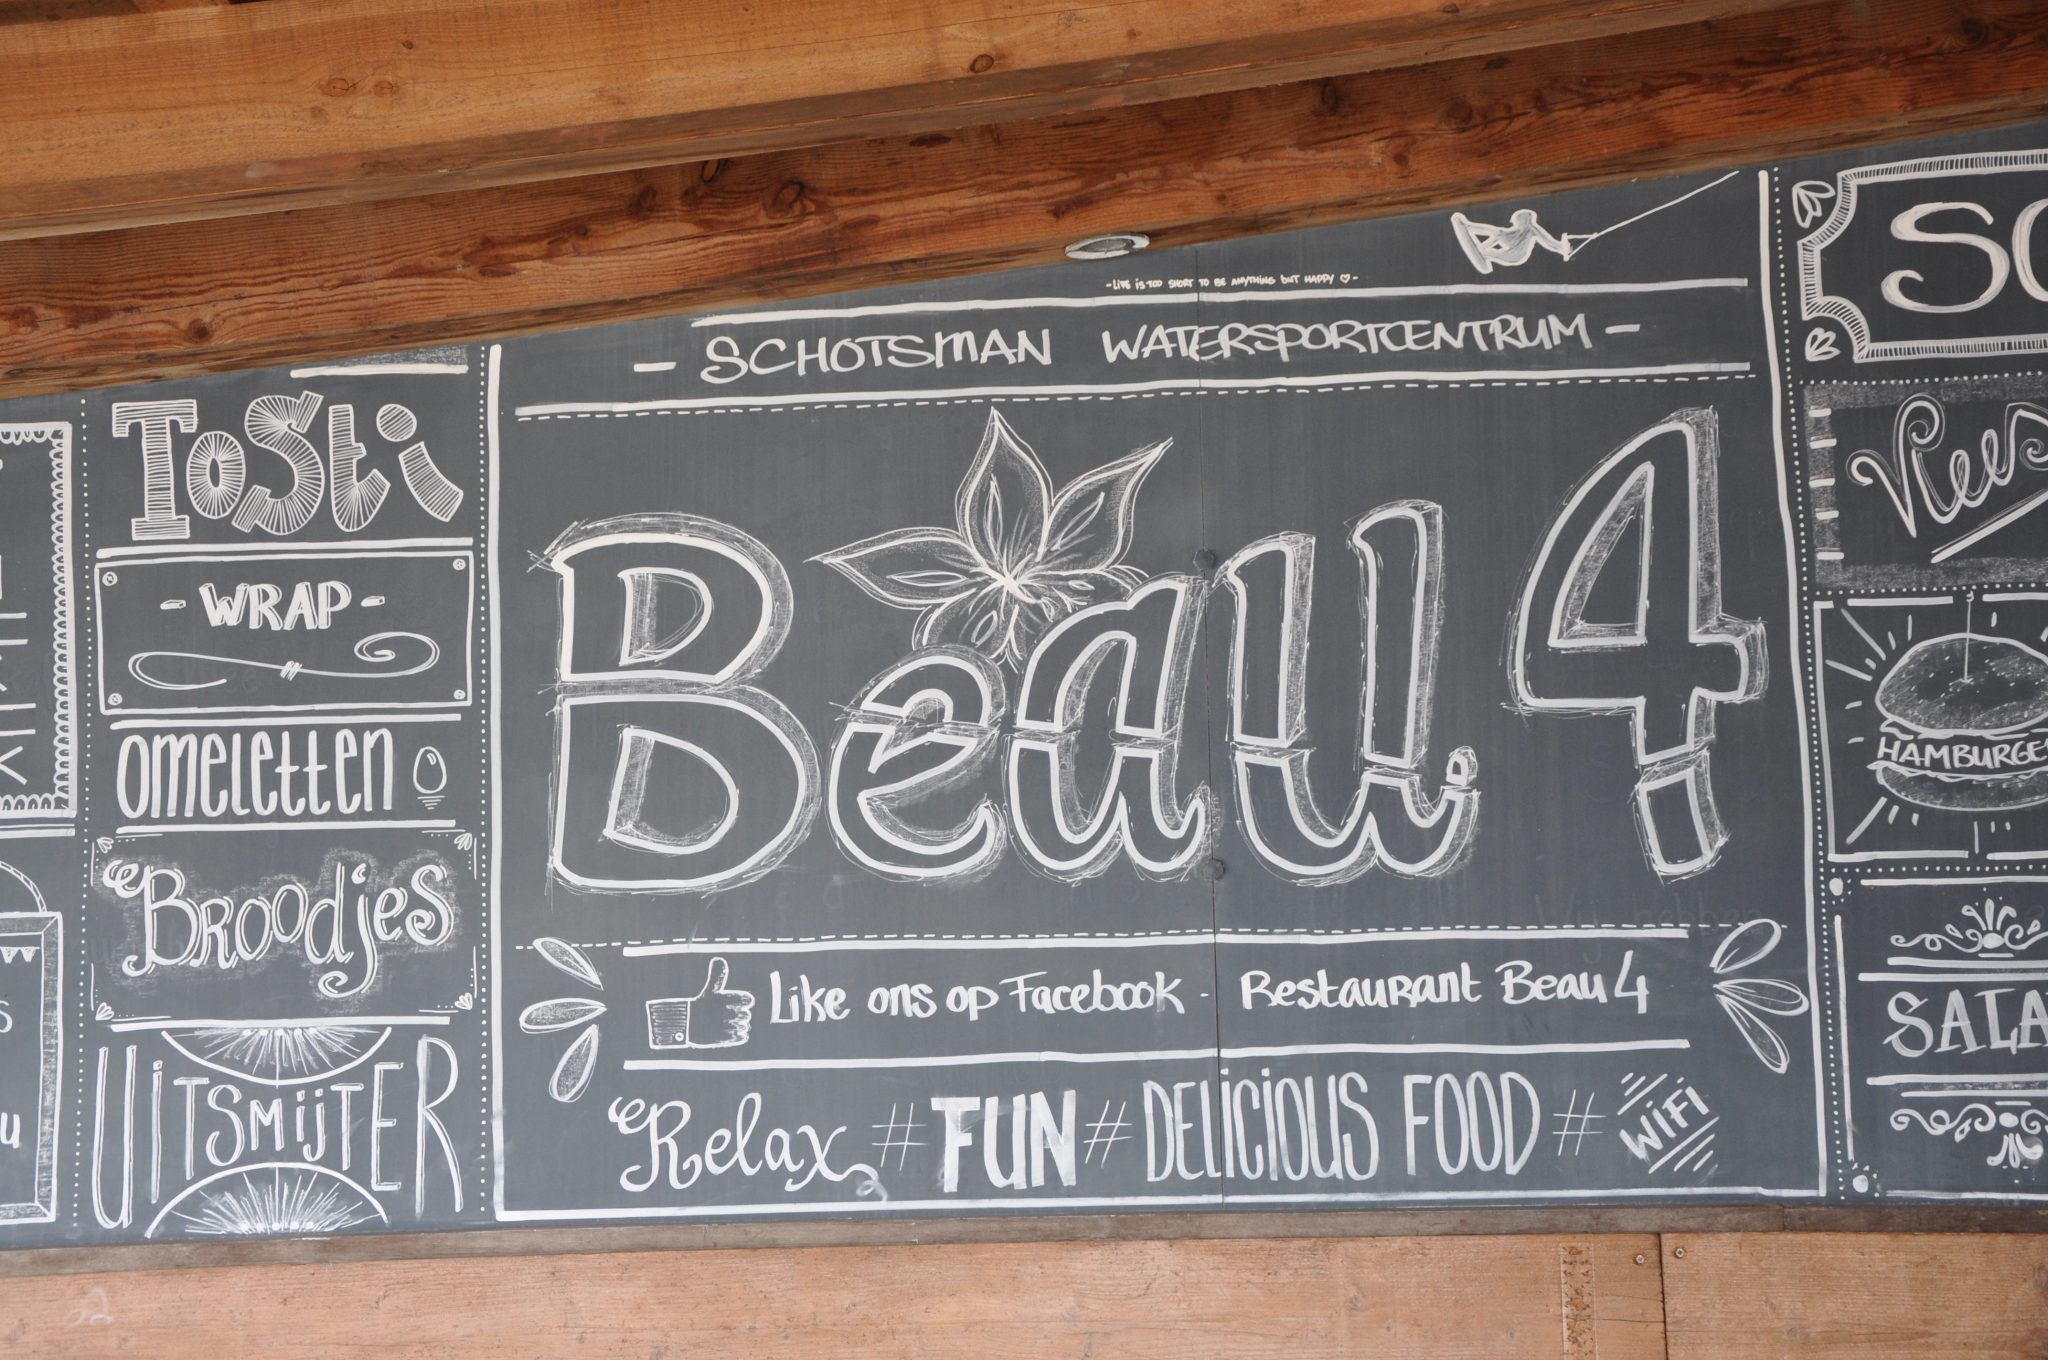 Tosti
- WRAP -
omeletten
Broodjes
UITSMIJTER
-LIFE IS TOO SHORT TO BE ANYTHING BUT HAPPY ♡-
- SCHOTSMAN WATERSPORTCENTRUM -
Beau 4
Like ons op Facebook - Restaurant Beau 4
Relax # FUN # DELICIOUS FOOD # WIFI
SO
Vlees
HAMBURGE
SALA